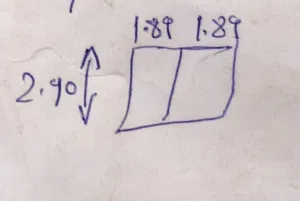 1.89 1.89
2.90